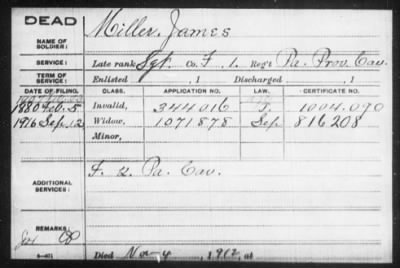 DEAD
NAME OF SOLDIER: Miller, James
SERVICE: Late rank Sgt. Co. F, 1. Reg't Pa. Prov. Cav.
TERM OF SERVICE: Enlisted , 1 Discharged , 1
DATE OF FILING. CLASS. APPLICATION NO. LAW. CERTIFICATE NO.
1880 Feb. 5 Invalid, 344016 J. 1004.090
1916 Sep. 12 Widow, 1071878 Sep. 816208
Minor,
ADDITIONAL SERVICES: F. 2 Pa. Cav.
REMARKS:
Died Nov 4, 1912, at